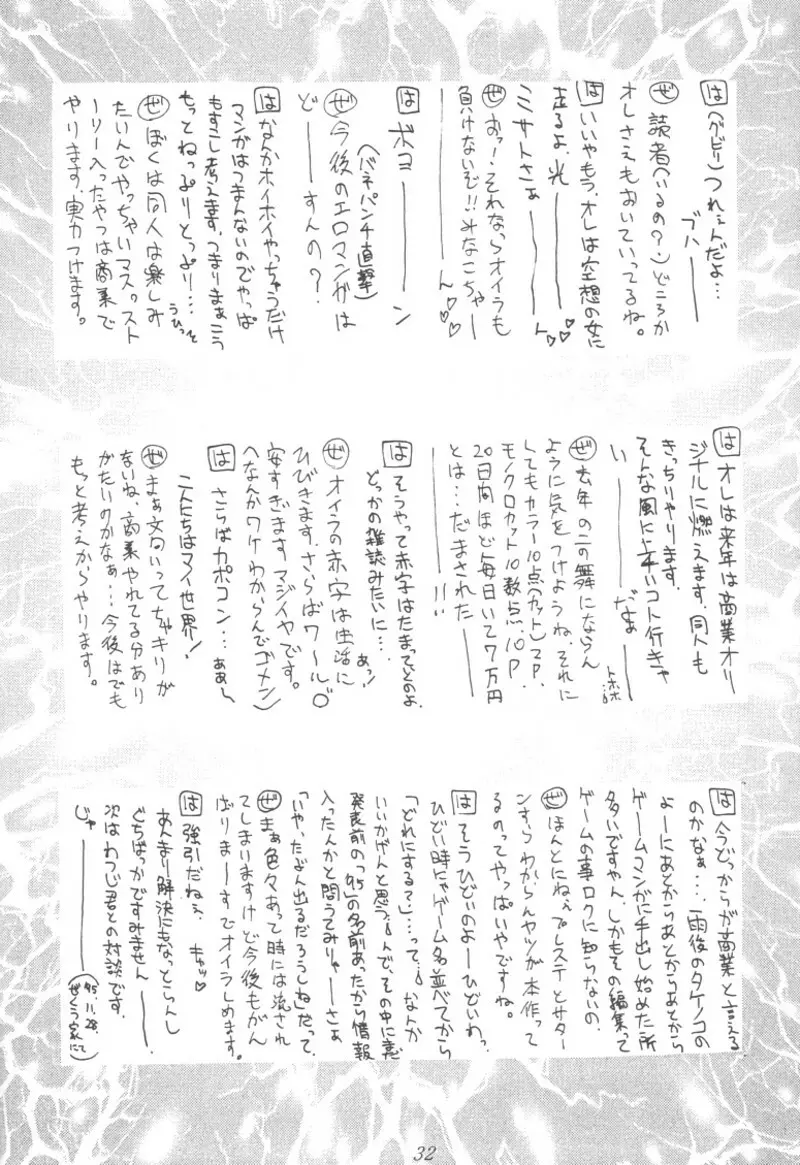 は (グビリ)つれェんだよ…
ブハ――
ぜ 読者(いるの?)どころか
オレさえもおいていってるね。
は いいやもう、オレは空想の女に
走るよ、光――――ん♡♡
ミサトさぁ――――ん♡♡
ぜ おっ!それならオイラも
負けないぞ!!みなこちゃ――
は ボコ――――ン
(バネパンチ直撃)
ぜ 今後のエロマンガは
ど――すんの?
は なんかホイホイやっちゃうだけ
マンガはつまんないのでやっぱ
もすこし考えます。つまりまぁこう
もっとねっぷりとっぷり…うひっっと
ぜ ぼくは同人は楽しみ
たいんでやっちゃいマス。スト
ーリー入ったやつは商業で
やります。実力つけます。
は オレは来年は商業オリ
ジナルに燃えます。同人も
きっちりやります。
そんな風に上手いコト行きゃ
い――――だよ――
トホホ…
ぜ 去年の二の舞にならん
ように気をつけようね。それに
してもカラー10点(カット)2P、
モノクロカット10数点、10P
20日間ほど毎日いて7万円
とは…だまされた――
――――!!
は そうやって赤字はたまってくのよ、
どっかの雑誌みたいに…
あっ!
ぜ オイラの赤字は生活に
ひびきます。さらばワールド
安すぎます マジイヤです。
(なんかワケわからんでゴメン)
は さらばカポコン…ああ〜
こんにちはマイ世界!
ぜ まぁ文句いってちゃキリが
ないね、商業やれてる分あり
がたいのかなぁ…今後はでも
もっと考えからやります。
は 今どっからが商業と言える
のかなぁ…、雨後のタケノコの
よーにあとからあとからあとから
ゲームマンガに手出し始めた所
多いですやん。しかもその編集って
ゲームの事ロクに知らないの、
ぜ ほんとにねぇ、プレステとサター
ンすらわからんヤツが本作って
るのってやっぱいやですね。
は そうひどいのよーひどいわっ
ひどい時にゃゲーム名並べてから
「どれにする?」…って…。なんか
いいかげんと思う。んで、その中に意
発表前の「95」の名前あったから情報
入ったんかと問うてみりゃーさぁ
「いや、たぶん出るだろうしね」だって、
ぜ まぁ色々あって時には流され
てしまいますけど今後もがん
ばりまーーすでオイラしめます。
は 強引だねぇ、キャッ♡
あんまり解決にもなっとらんし
ぐちばっかですみません――、
次はわつじ君との対談です。
じゃ――――
(95.11.28.
ぜくう家にて)
32